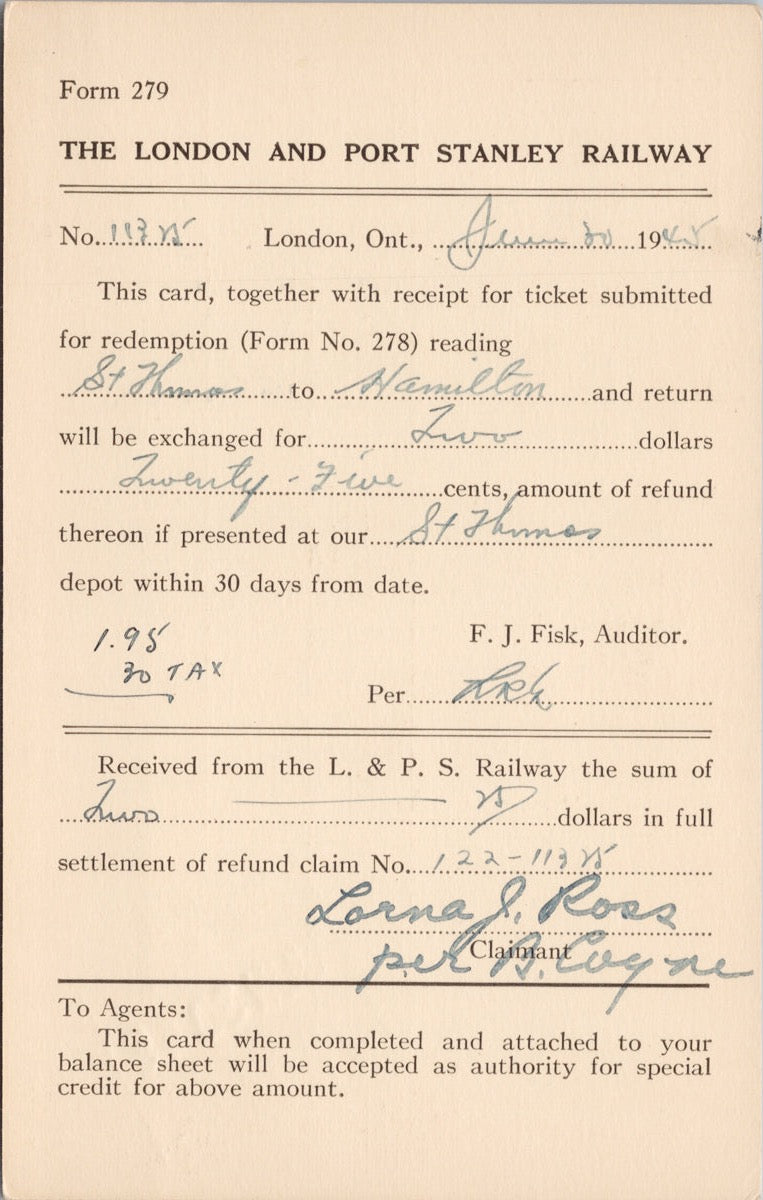 Form 279
THE LONDON AND PORT STANLEY RAILWAY
No. 11325 London, Ont., June 20 1945
This card, together with receipt for ticket submitted
for redemption (Form No. 278) reading
St Thomas to Hamilton and return
will be exchanged for Two dollars
Twenty-Five cents, amount of refund
thereon if presented at our St Thomas
depot within 30 days from date.
1.95
F. J. Fisk, Auditor.
30 TAX
Per
Received from the L. & P. S. Railway the sum of
Two 25 dollars in full
settlement of refund claim No. 122-11325
Lorna J. Ross
Claimant
per B. Coyne
To Agents:
This card when completed and attached to your
balance sheet will be accepted as authority for special
credit for above amount.